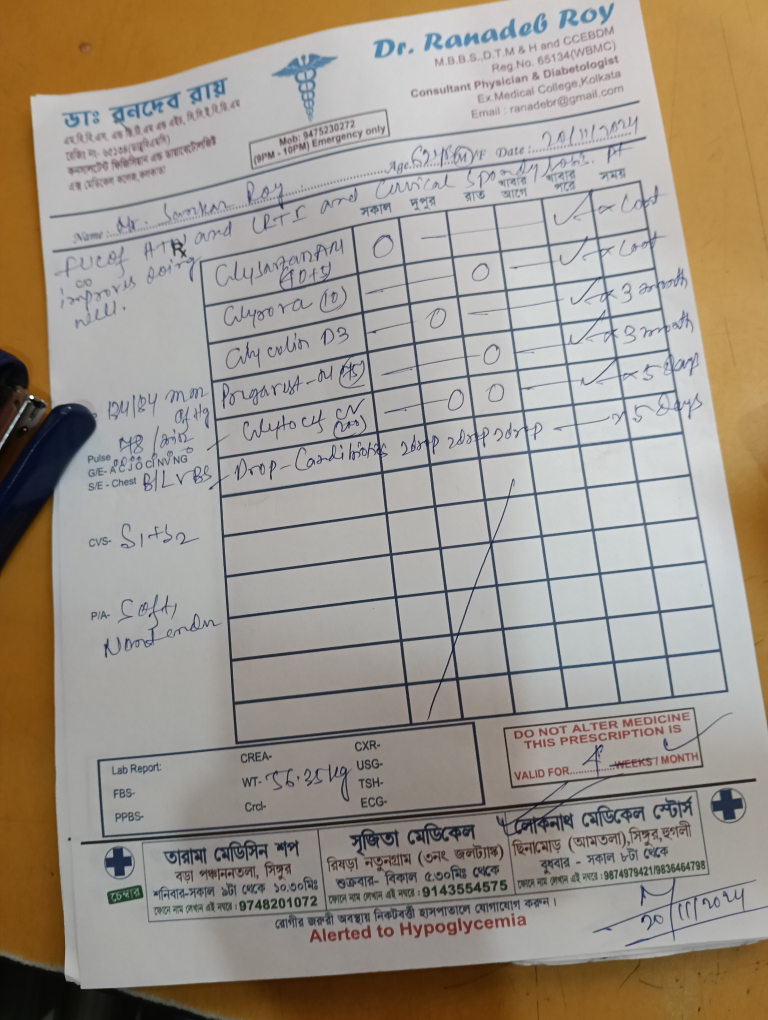 Dr. Ranadeb Roy
M.B.B.S.,D.T.M & H and CCEBDM
Reg.No. 65134(WBMC)
Consultant Physician & Diabetologist
Ex.Medical College,Kolkata
Email : ranadebr@gmail.com
ডাঃ রনদেব রায়
কনসালটেন্ট ফিজিসিয়ান এন্ড ডায়াবেটোলজিষ্ট
এক্স মেডিকেল কলেজ, কলকাতা
Mob: 9475230272
(9PM - 10PM) Emergency only
Name: Mr. Sankar Roy Age: 62 Yrs (M)/F Date: 20/11/2024
FUC of HTN and LRTI and Cervical Spondylosis. Pt
improves doing
well.
Rx
সকাল দুপুর রাত খাবার আগে খাবার পরে সময়
(40+5) O — ✓ x Cont
(10) — O — ✓ x Cont
D3 — O — ✓ x 3 month
— O — ✓ x 3 month
(200) — O O — ✓ x 5 days
Drop - 2drop 2drop 2drop — x 5 days
134/84 mm of Hg
Pulse 78/min
G/E- A C J O Cl NV NG
S/E - Chest B/L VBS
CVS- S1+S2
P/A- Soft,
Lab Report:
FBS-
PPBS-
CREA-
WT- 56.35 kg
Crcl-
CXR-
USG-
TSH-
ECG-
DO NOT ALTER MEDICINE
THIS PRESCRIPTION IS
VALID FOR 4 WEEKS / MONTH
চেম্বার
তারামা মেডিসিন শপ
বড়া পঞ্চাননতলা, সিঙ্গুর
শনিবার-সকাল ৯টা থেকে ১০.৩০মিঃ
ফোনে নাম লেখান এই নম্বরে : 9748201072
সুজিতা মেডিকেল
রিষড়া নতুনগ্রাম (৩নং জলট্যাঙ্ক)
শুক্রবার- বিকাল ৫.৩০মিঃ থেকে
ফোনে নাম লেখান এই নম্বরে : 9143554575
লোকনাথ মেডিকেল স্টোর্স
ছিনামোড় (আমতলা),সিঙ্গুর,হুগলী
বুধবার - সকাল ৮টা থেকে
ফোনে নাম লেখান এই নম্বরে - 9874979421/9836464798
রোগীর জরুরী অবস্থায় নিকটবর্তী হাসপাতালে যোগাযোগ করুন।
Alerted to Hypoglycemia
20/11/2024